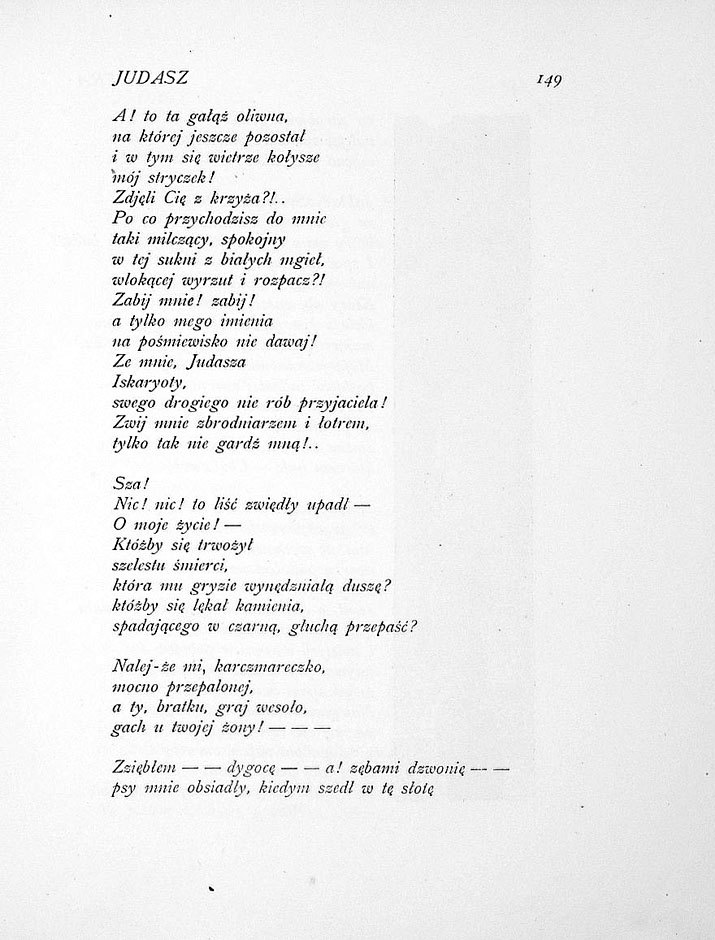 JUDASZ 149
A! to ta gałąź oliwna,
na której jeszcze pozostał
i w tym się wietrze kołysze
mój stryczek!
Zdjęli Cię z krzyża?!..
Po co przychodzisz do mnie
taki milczący, spokojny
w tej sukni z białych mgieł,
wlokącej wyrzut i rozpacz?!
Zabij mnie! zabij!
a tylko mego imienia
na pośmiewisko nie dawaj!
Ze mnie, Judasza
Iskaryoty,
swego drogiego nie rób przyjaciela!
Zwij mnie zbrodniarzem i łotrem,
tylko tak nie gardź mną!..
Sza!
Nic! nic! to liść zwiędły upadł —
O moje życie! —
Któżby się trwożył
szelestu śmierci,
która mu gryzie wynędzniałą duszę?
któżby się lękał kamienia,
spadającego w czarną, głuchą przepaść?
Nalej-że mi, karczmareczko,
mocno przepalonej,
a ty, bratku, graj wesoło,
gach u twojej żony! — — —
Zziębłem — — dygocę — — a! zębami dzwonię — —
psy mnie obsiadły, kiedym szedł w tę słotę